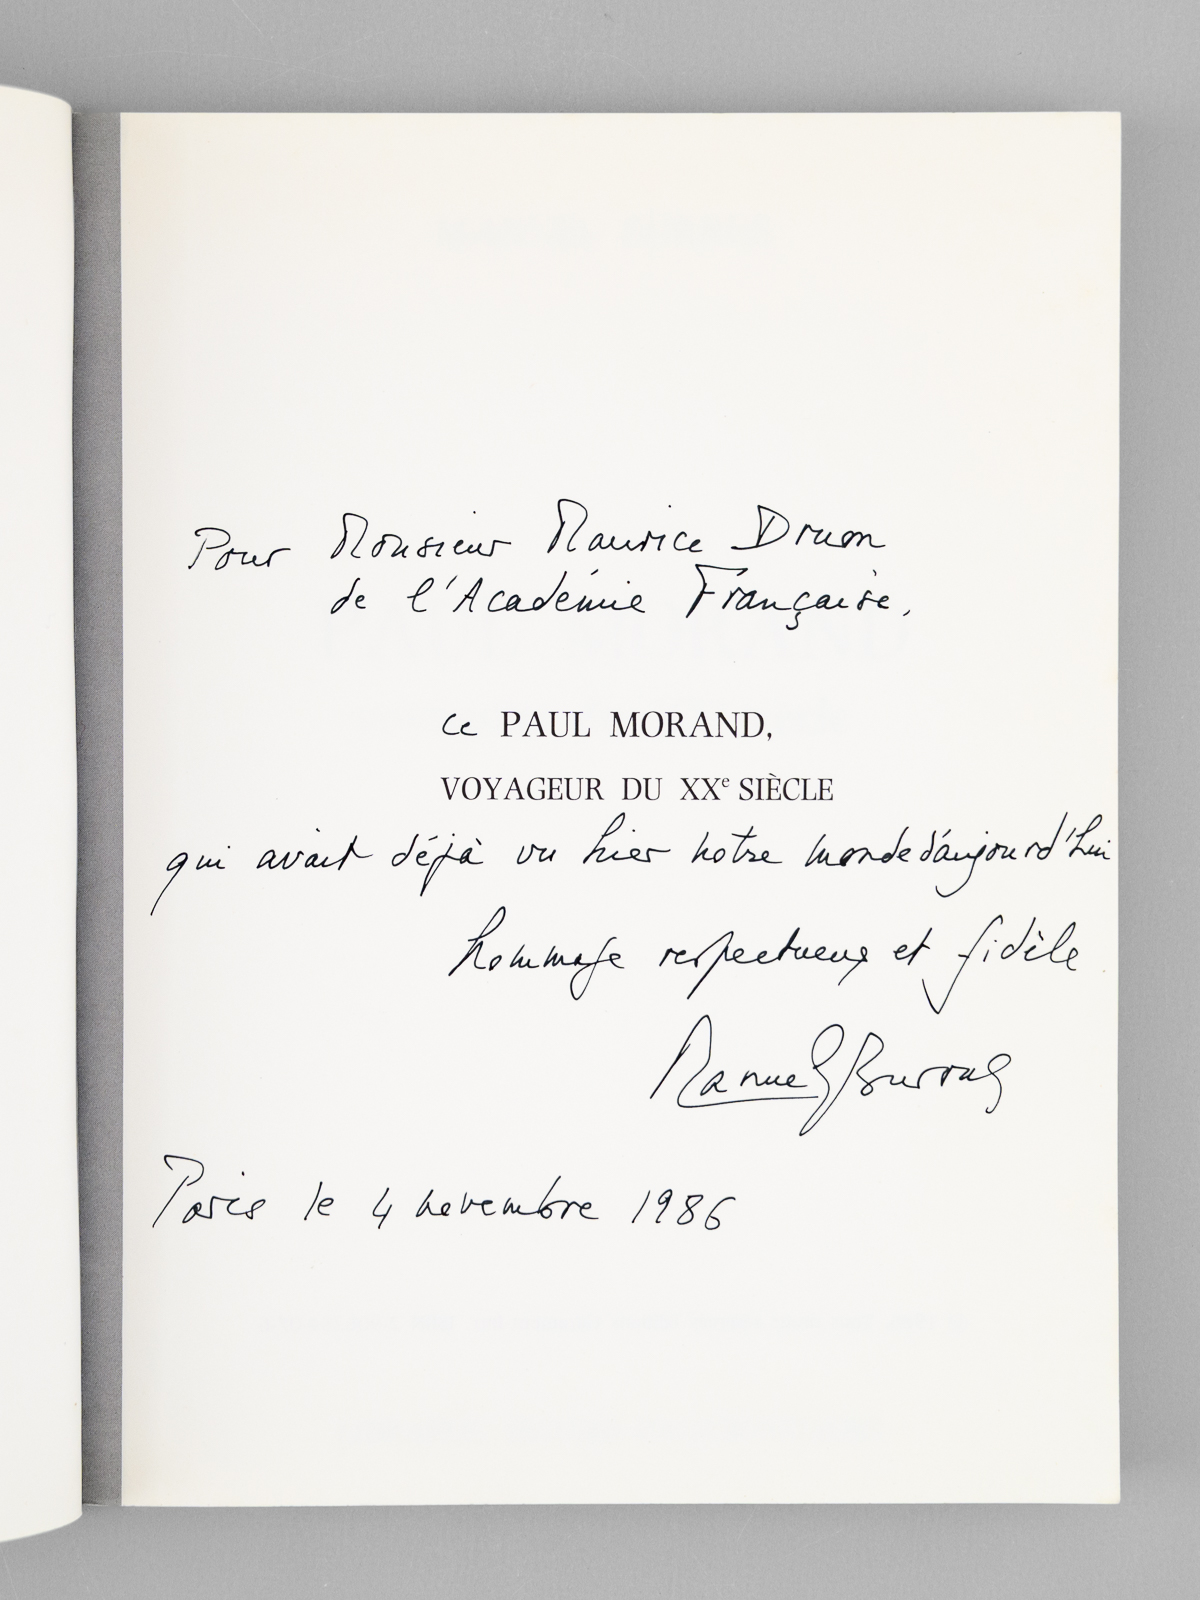 Pour Monsieur Maurice Druon
de l'Académie Française,
ce PAUL MORAND,
VOYAGEUR DU XXe SIÈCLE
qui avait déjà vu hier notre monde d'aujourd'hui
hommage respectueux et fidèle
Manuel Burrus
Paris le 4 novembre 1986